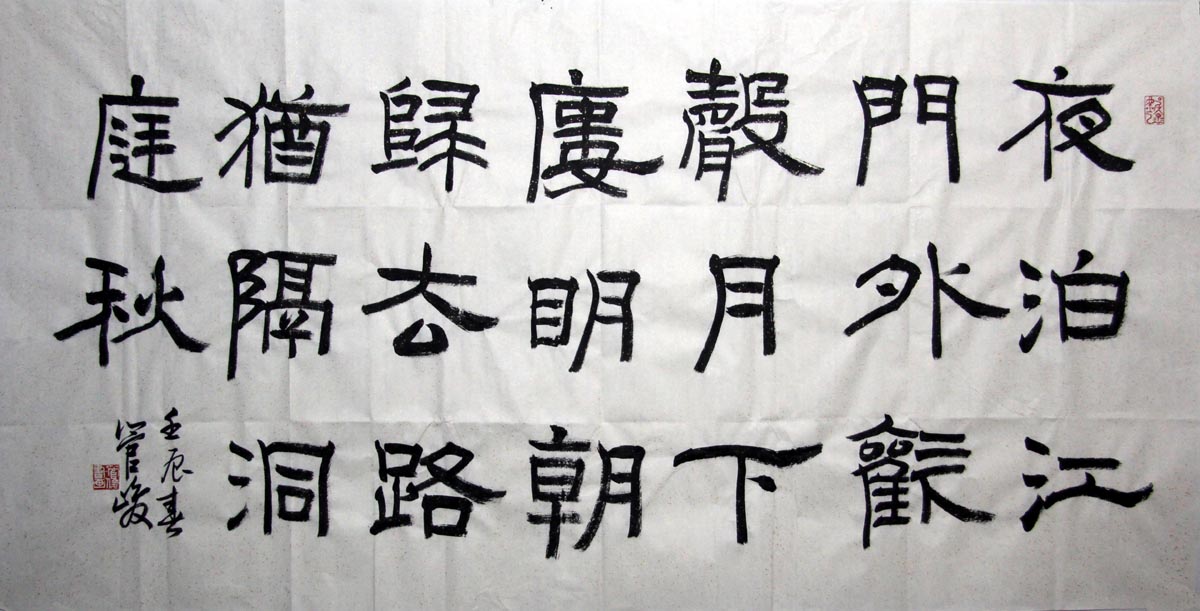 夜泊江
門外歡
聲月下
廔眀朝
歸去路
猶隔洞
庭秋
壬辰春
管峻